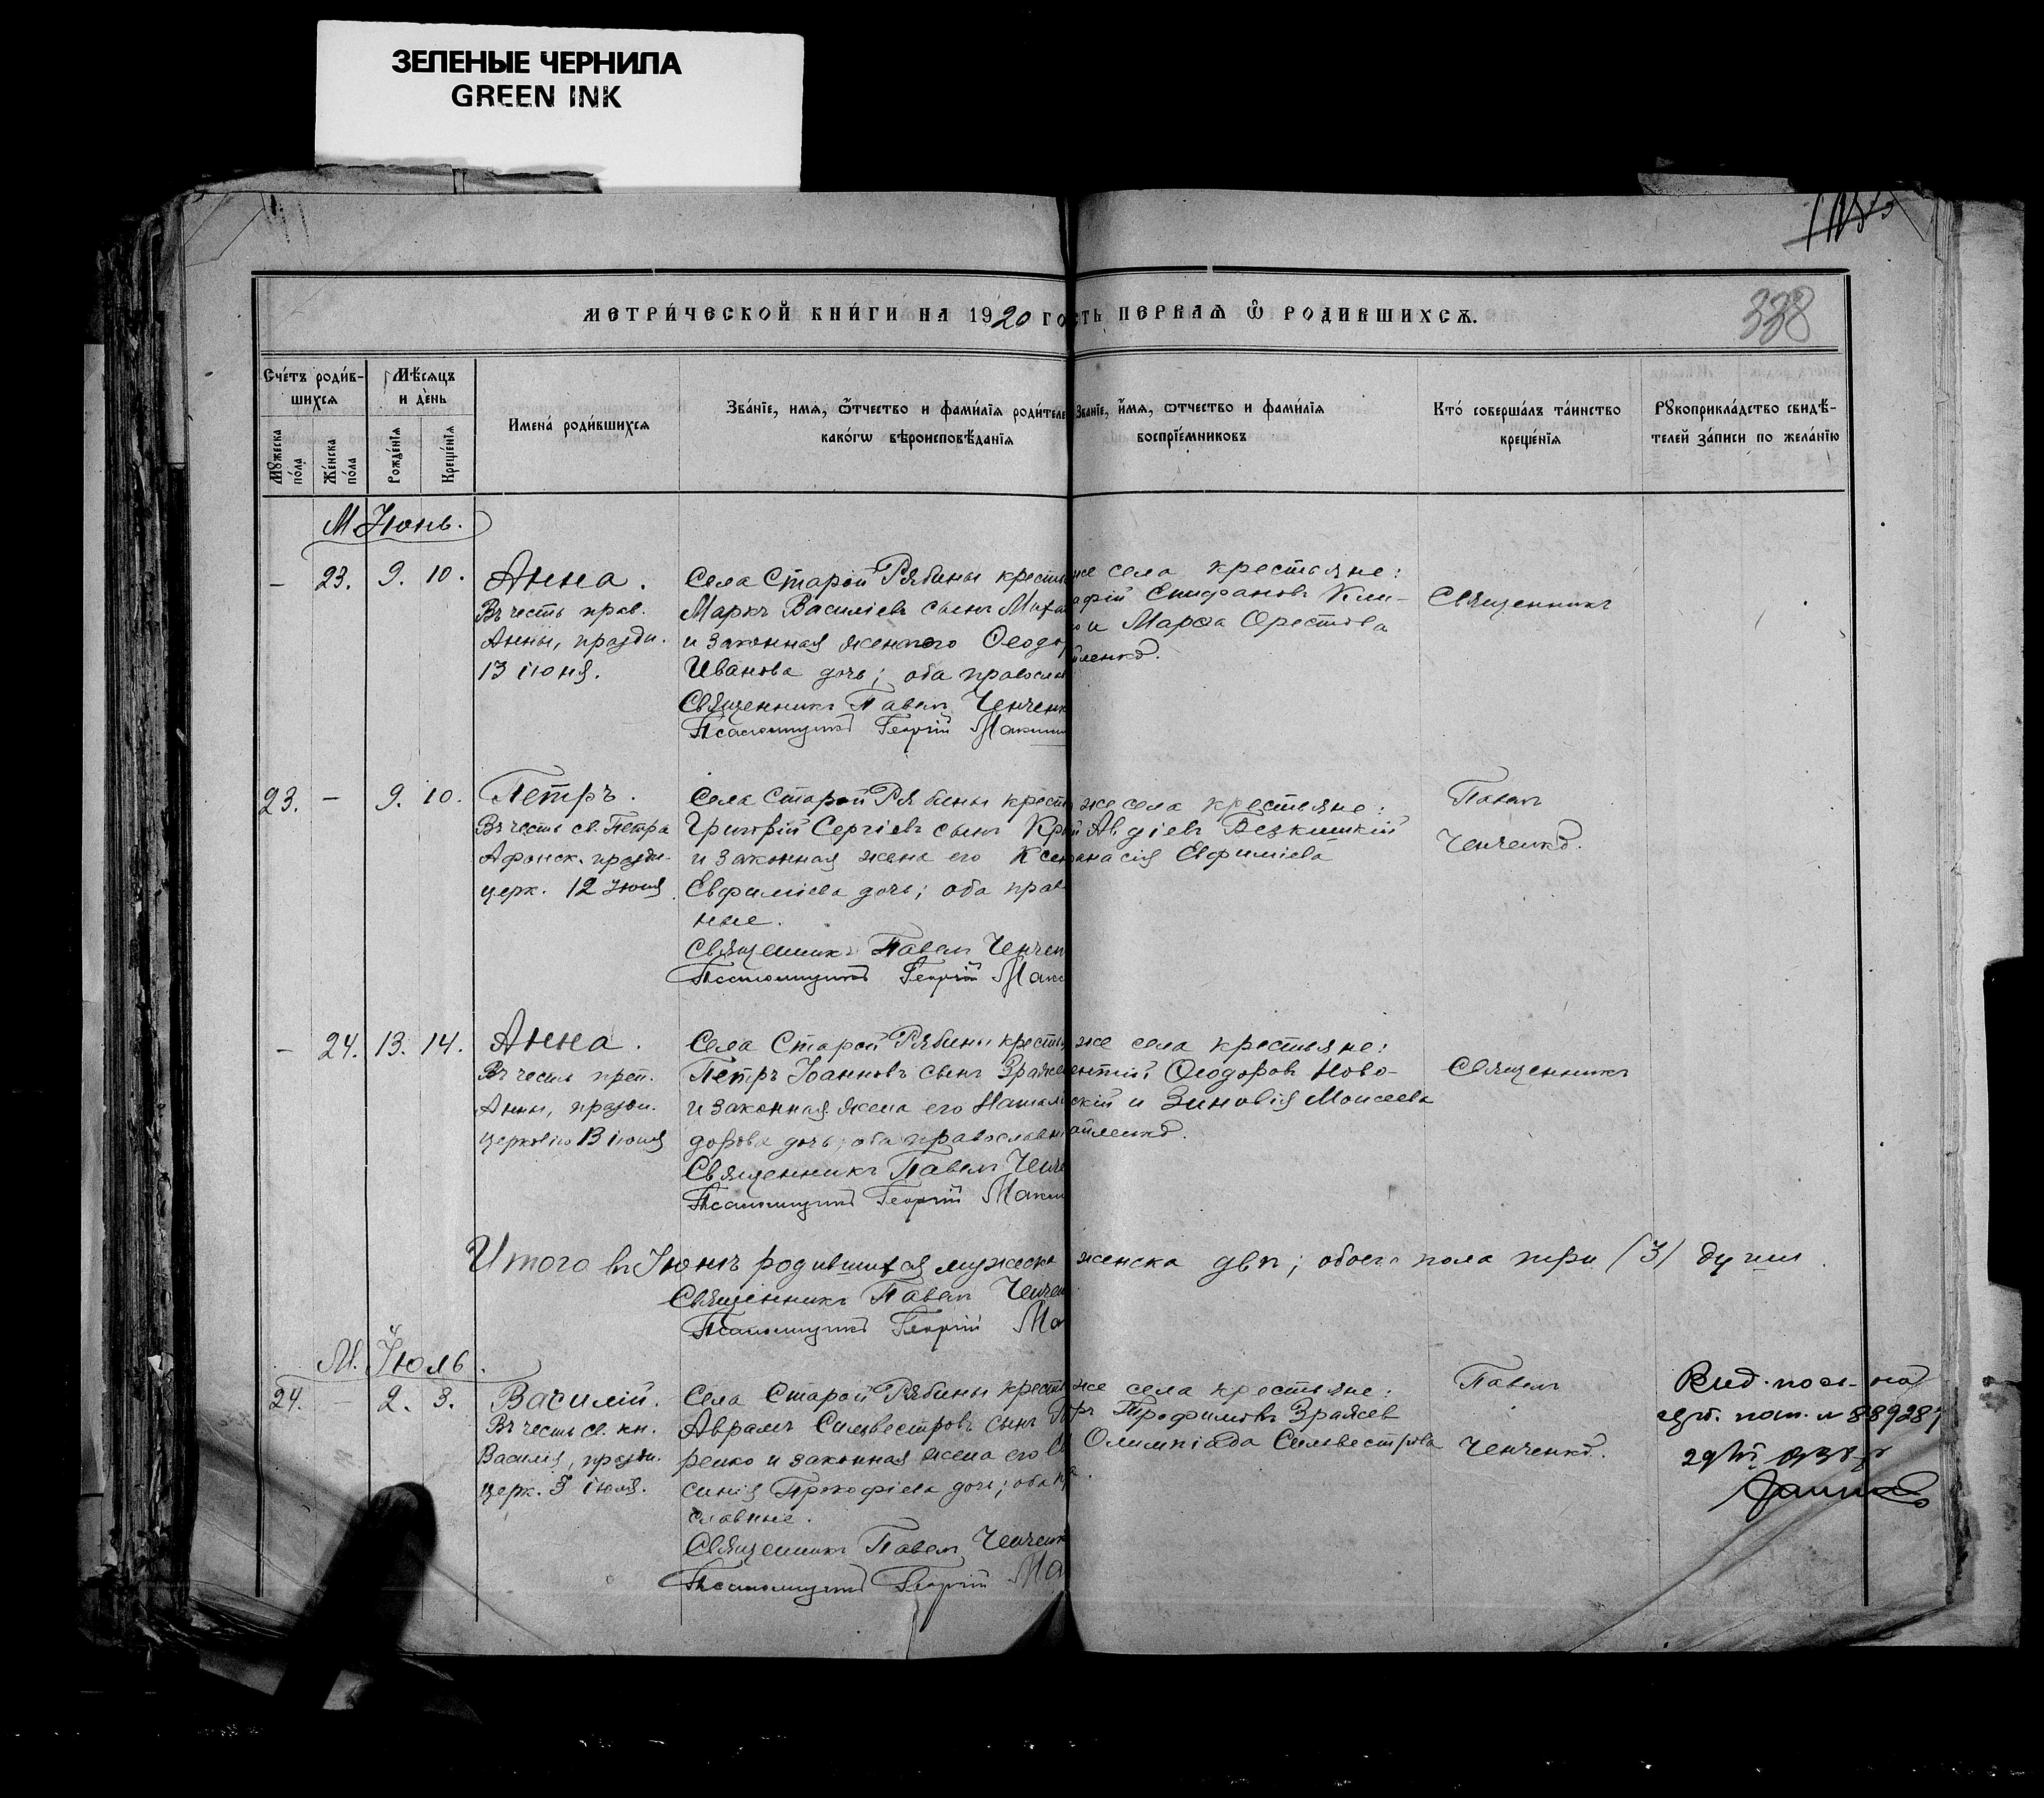 ЗЕЛЕНЫЕ ЧЕРНИЛА
GREEN INK
338
МЕТРИ́ЧЕСКОЙ КНИ́ГИ НА 1920 ГО
СТЬ ПЕРВАѦ Ѿ РОДИВШИХСѦ.
Сче́тъ роди́в-
шихсѧ
Мѣ́сѧцъ
и де́нь
Мꙋ́жеска по́ла
Же́нска по́ла
Рожде́нїѧ
Креще́нїѧ
Имена̀ роди́вшихсѧ
Зва́нїе, имѧ, ѻ҆́тчество и фами́лїѧ роди́теле
како́гѡ вѣроисповѣ́данїѧ
Зва́нїе, и҆́мѧ, ѻтчество и фами́лїѧ
воспрїе́мниковъ
Кто́ соверша́лъ та́инство
креще́нїѧ
Рꙋкоприкла́дство свидѣ́-
телей за́писи по жела́нїю
М Іюнь.
— 23. 9. 10.
Анна.
Въ честь прав.
Анны, праздн.
13 іюня.
Села Старой Рябины кресть
Маркъ Василіевъ сынъ
и законная жена его Ѳеодо
Иванова дочь; оба правосла
Священникъ Павелъ Ченченк
Псаломщикъ Георгій Маким
же села крестьяне:
Епифановъ Кли-
и Марѳа Орестова
йленко.
Священникъ
23. — 9. 10.
Петръ.
Въ честь св. Петра
Афонск. праздн.
церк. 12 іюня.
Села Старой Рябины крест
Григорій Сергіевъ сынъ
и законная жена его Ксен
Евфиміева дочь; оба прав
ные.
Священникъ Павелъ Ченчен
Псаломщикъ Георгій Мак
же села крестьяне:
Авдіевъ
анасія Евфиміева
Павелъ
Ченченко.
— 24. 13. 14.
Анна.
Въ честь преп.
Анны, праздн.
церковію 13 іюня
Села Старой Рябины кресть
Петръ Іоанновъ сынъ Зраже
и законная жена его Натал
дорова дочь; оба православн
Священникъ Павелъ Ченче
Псаломщикъ Георгій Маки
же села крестьяне:
ентій Ѳеодоровъ Ново-
скій и Зиновія Моисеева
айленко.
Священникъ
Итого въ Іюнѣ родившихся мужеска
женска двѣ; обоего пола три (3) души.
Священникъ Павелъ Ченчен
Псаломщикъ Георгій Ма
М. Іюль.
24. — 2. 3.
Василій.
Въ честь св. кн.
Василія, праздн.
церк. 3 іюля.
Села Старой Рябины крест
Аврамъ Сильвестровъ сынъ
ренко и законная жена его
синія Прокофіева дочь; оба пра
славные.
Священникъ Павелъ Ченченк
Псаломщикъ Георгій Ма
же села крестьяне:
Трофимовъ Зражев
Олимпіада Сильвестрова
Павелъ
Ченченко.